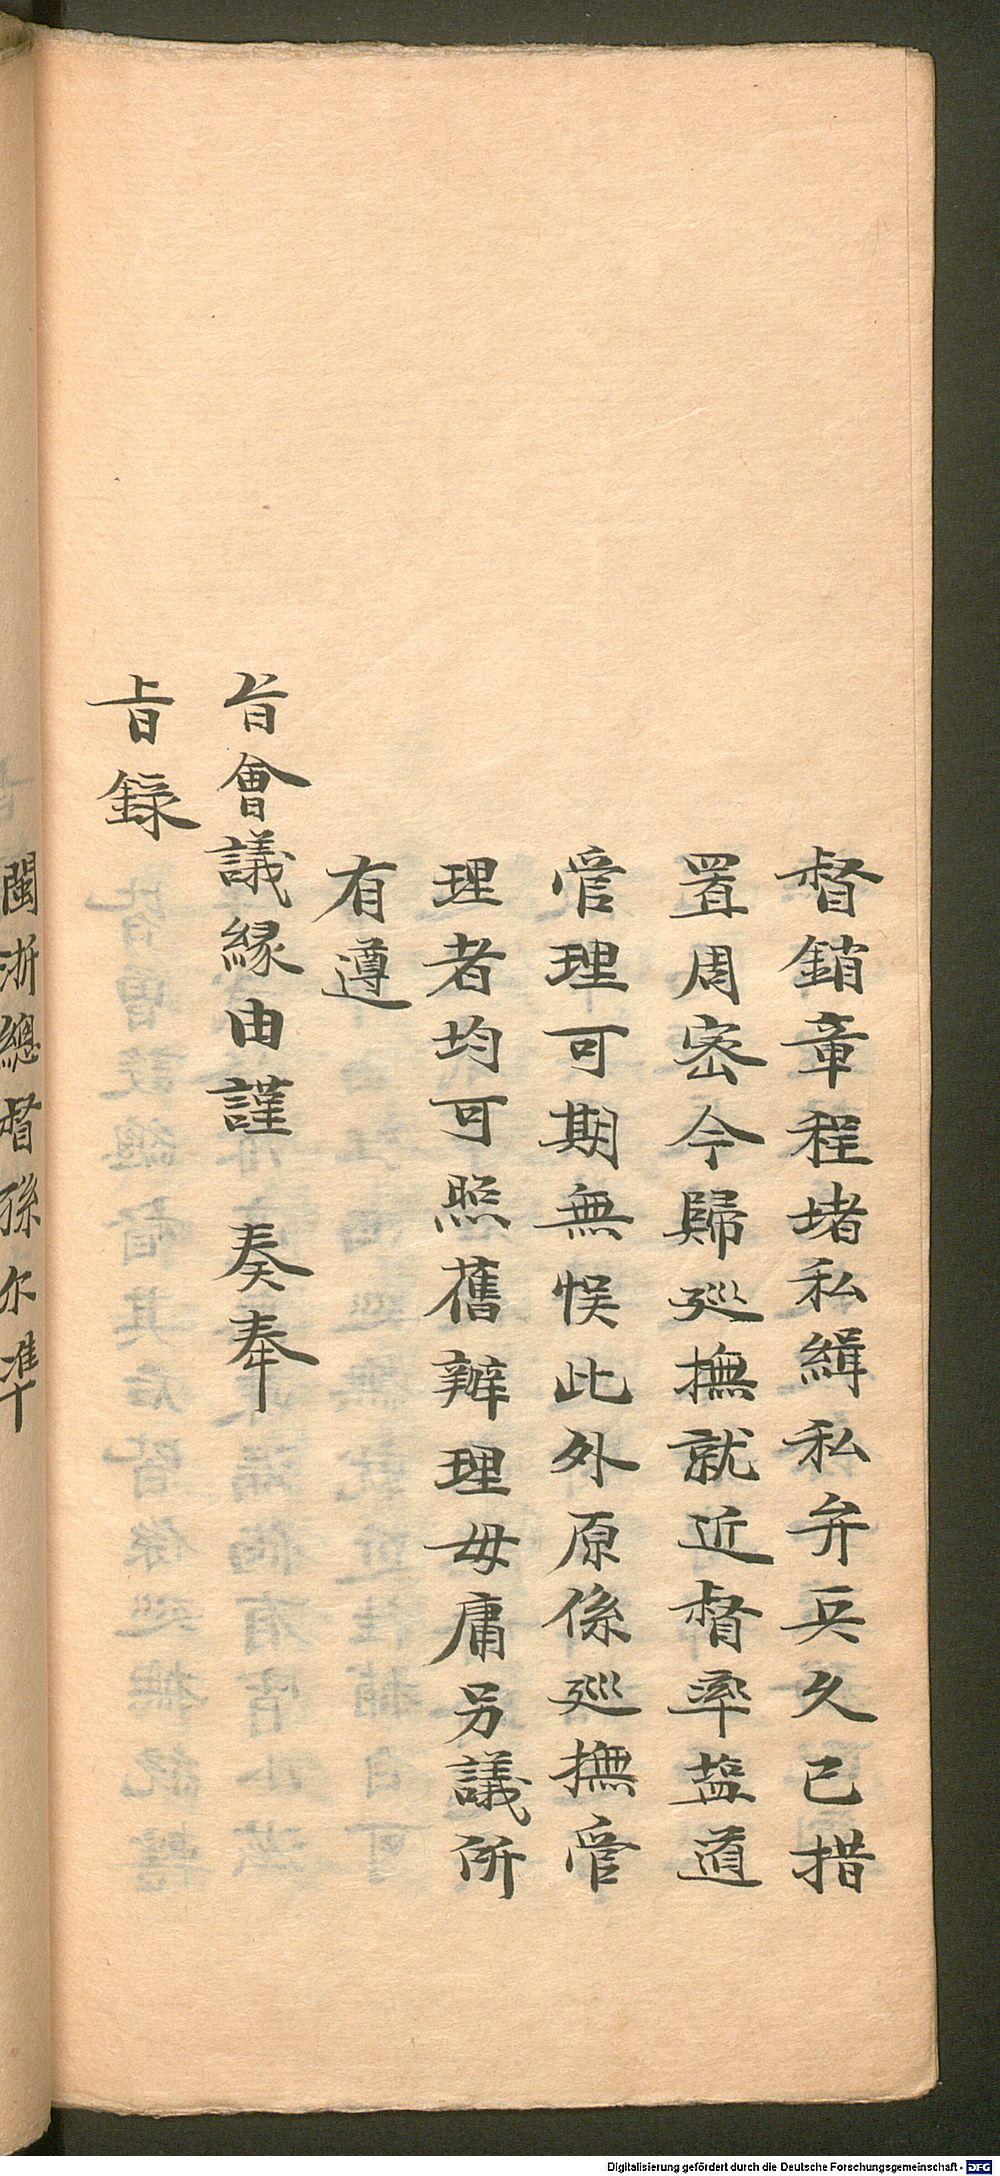 督銷章程堵私緝私弁兵久已措
置周密今歸廵撫就近督率塩道
管理可期無悮此外原係廵撫管
理者均可照舊辦理毋庸另議所
有遵
旨會議緣由謹 奏奉
旨錄
閩浙總督孫尔準
Digitalisierung gefördert durch die Deutsche Forschungsgemeinschaft - DFG